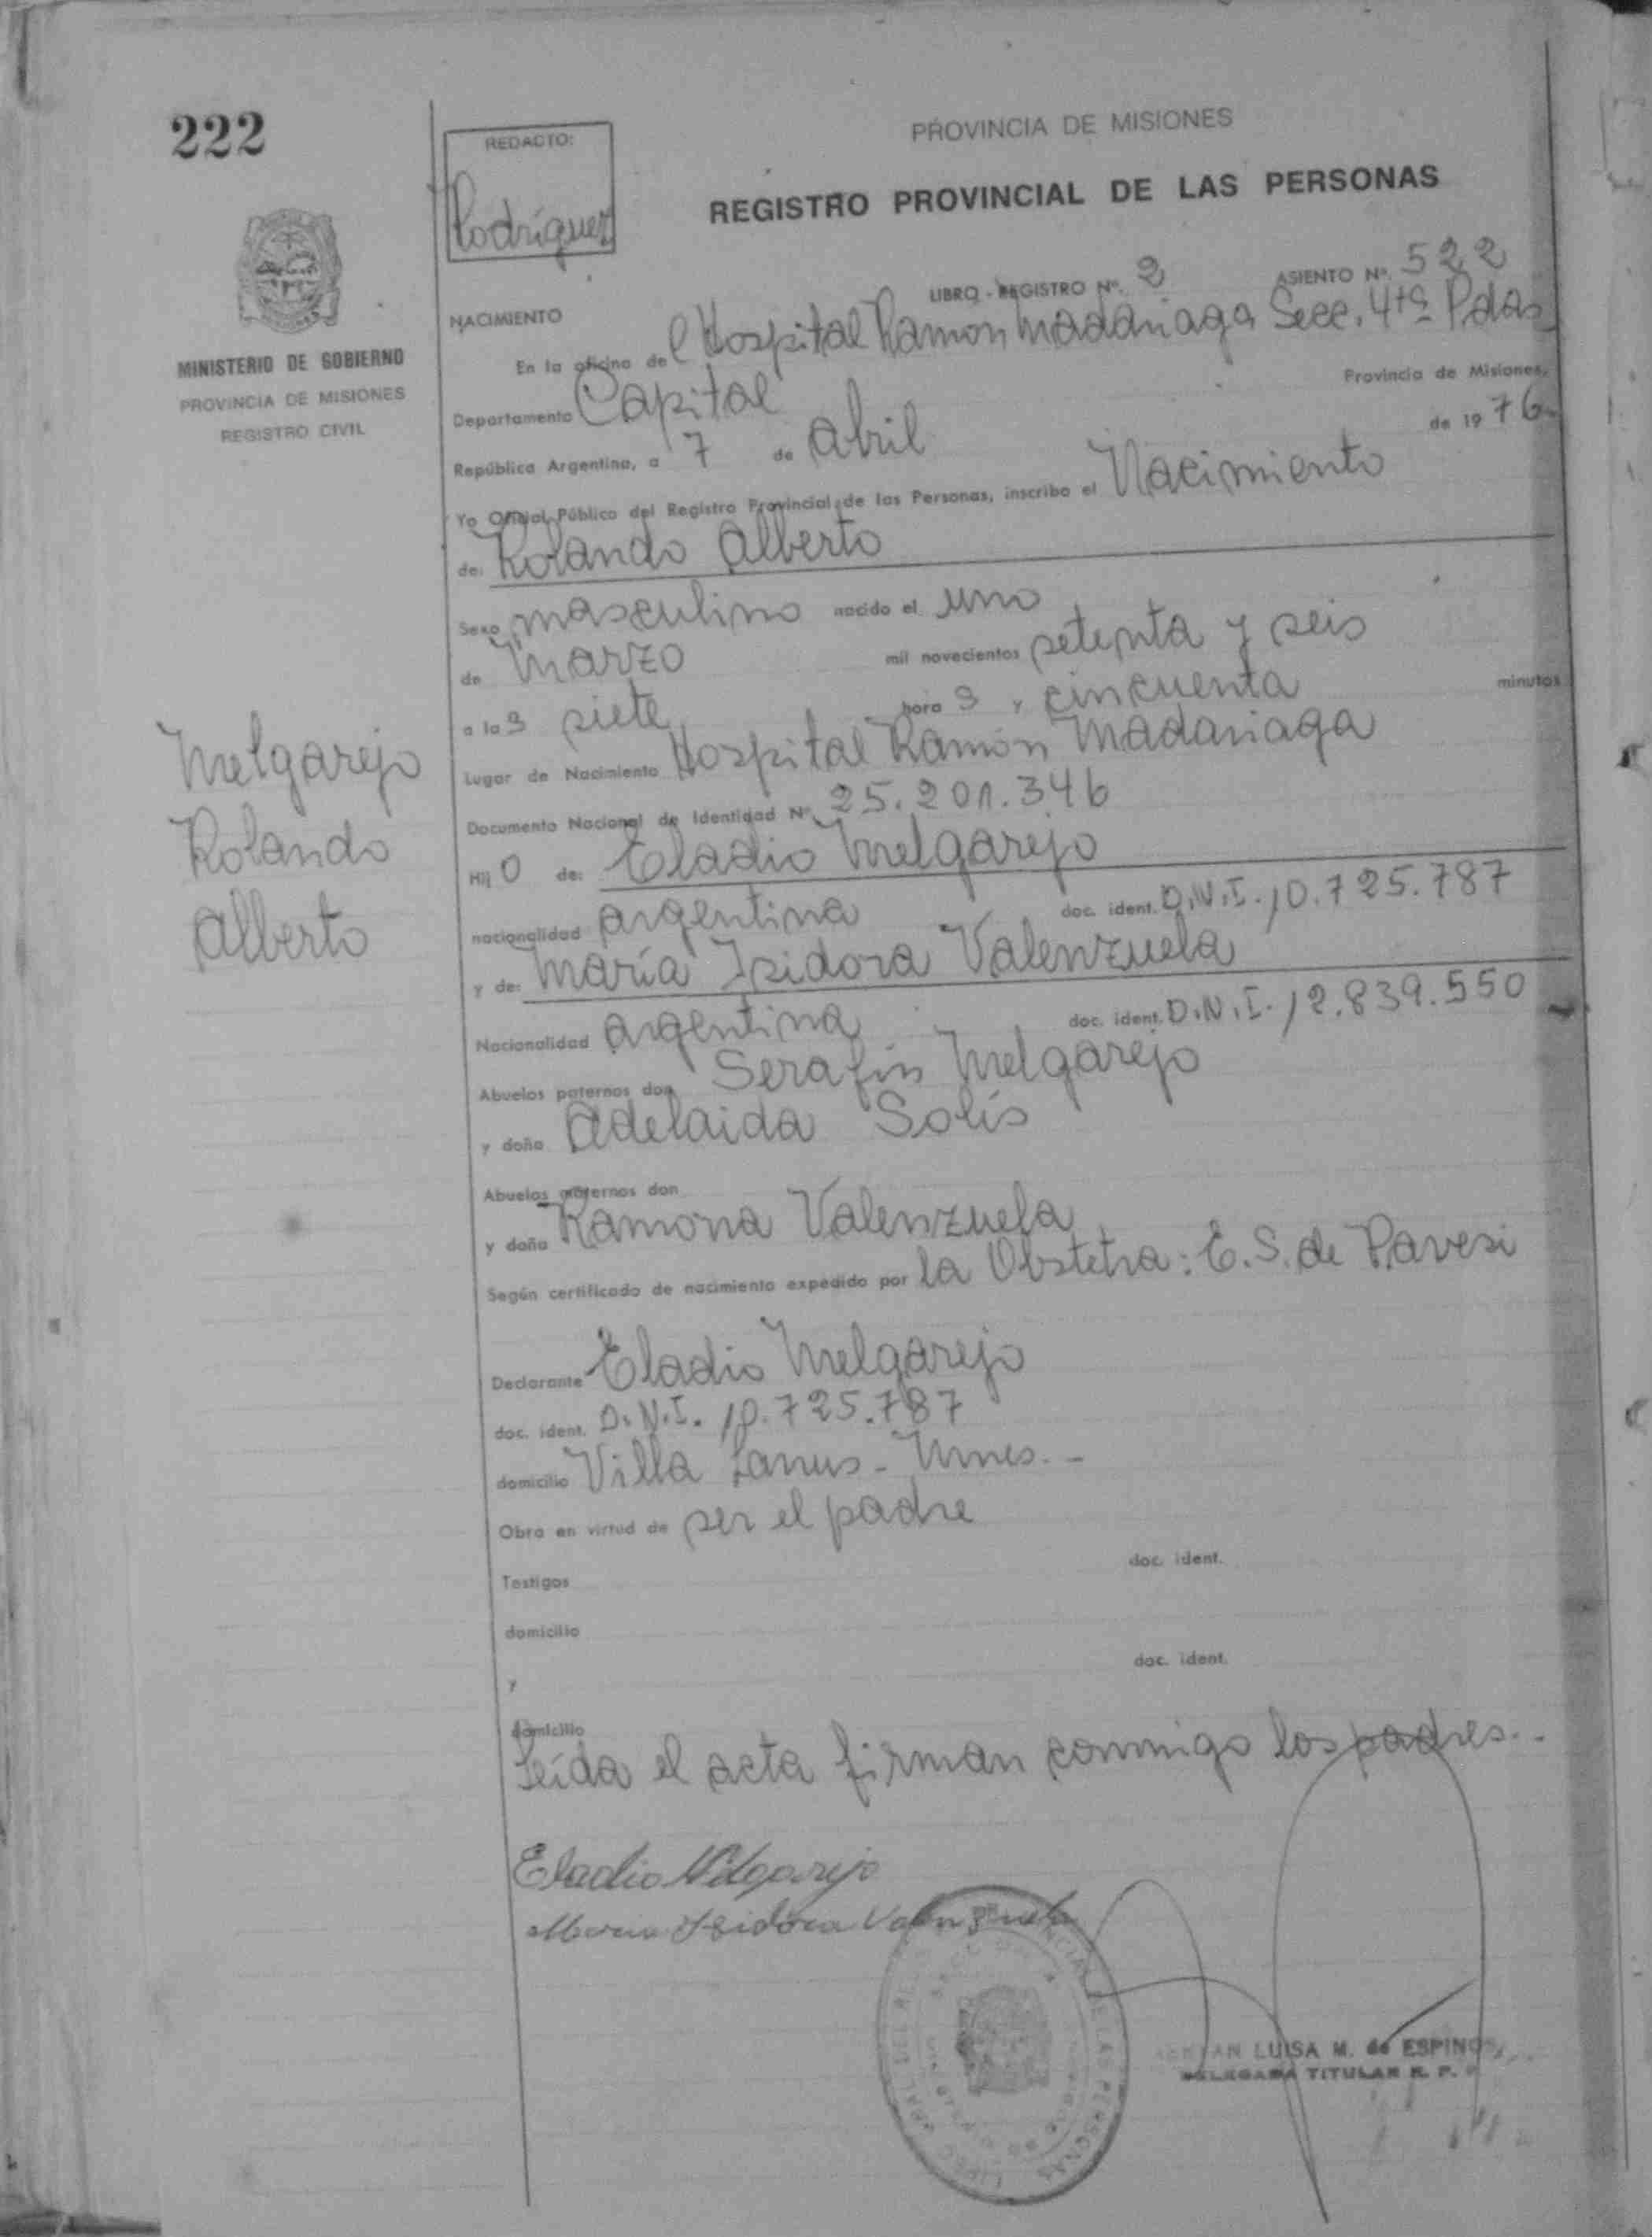 222
REDACTO:
Rodríguez
PROVINCIA DE MISIONES
REGISTRO PROVINCIAL DE LAS PERSONAS
MINISTERIO DE GOBIERNO
PROVINCIA DE MISIONES
REGISTRO CIVIL
LIBRO - REGISTRO Nº. 2 ASIENTO Nº. 522
NACIMIENTO
En la oficina del Hospital Ramón Madariaga Secc. 4ta Pdas
Departamento Capital Provincia de Misiones,
República Argentina, a 7 de Abril de 1976.
Yo Oficial Público del Registro Provincial de las Personas, inscribo el Nacimiento
de: Rolando Alberto
Sexo masculino nacido el uno
de Marzo mil novecientos setenta y seis
a las siete horas y cincuenta minutos
Lugar de Nacimiento Hospital Ramón Madariaga
Documento Nacional de Identidad Nº. 25.201.346
Hijo de: Eladio Melgarejo
nacionalidad argentina doc. ident. D.N.I. 10.725.787
y de: María Isidora Valenzuela
Nacionalidad argentina doc. ident. D.N.I. 12.839.550
Abuelos paternos don Serafín Melgarejo
y doña Adelaida Solís
Abuelos maternos don
y doña Ramona Valenzuela
Según certificado de nacimiento expedido por la Obstetra: E. S. de Pavesi
Declarante Eladio Melgarejo
doc. ident. D.N.I. 10.725.787
domicilio Villa Lanus - Mnes. -
Obra en virtud de ser el padre
Testigos doc. ident.
domicilio
y doc. ident.
domicilio
Leída el acta firman conmigo los padres. -
Melgarejo
Rolando
Alberto
Eladio Melgarejo
Maria Isidora Valenzuela
LUISA M. de ESPINO
DELEGADA TITULAR R. P.
DE LAS PERSONAS